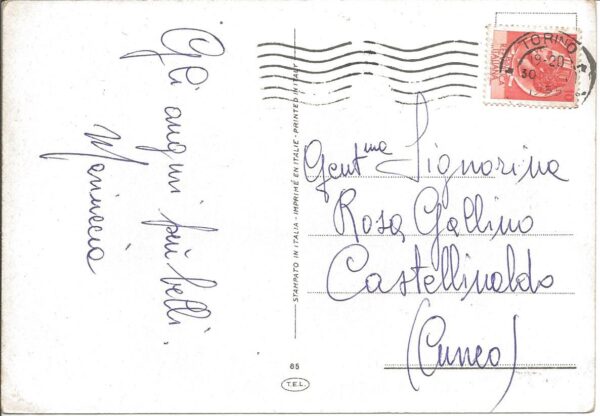 Gli auguri più belli.
Mariuccia
STAMPATO IN ITALIA - IMPRIMÉ EN ITALIE - PRINTED IN ITALY
65
T.E.L.
TORINO
19-20
30
Gent.ma Signorina
Rosa Gallino
Castellinaldo
(Cuneo)